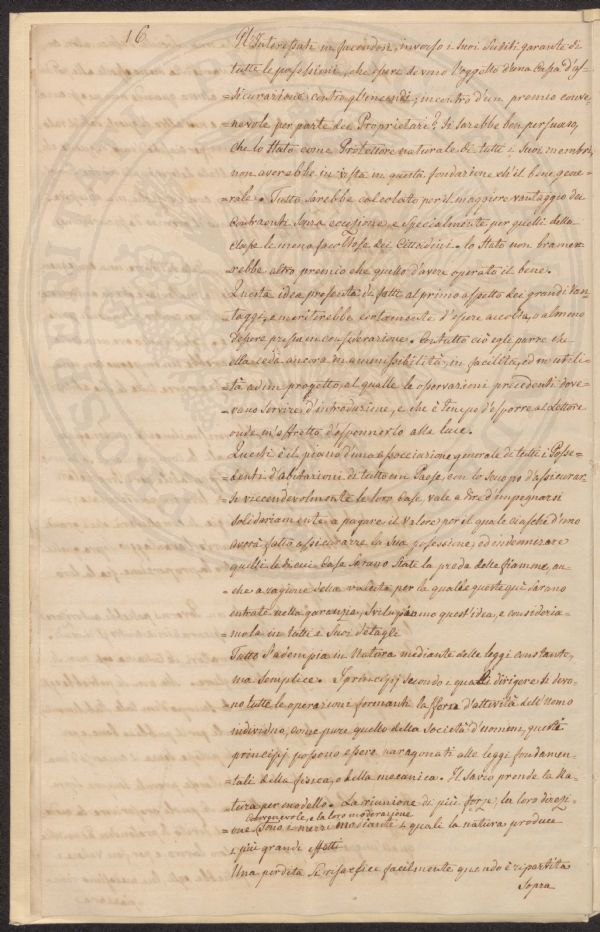 16
gl'Interessati in facendosi, inverso i suoi Suditi garante di
tutte le possessioni, che essere devono l'oggetto d'una Cassa d'as=
=sicurazione contro gl'incendi, incontro d'un premio conve=
=nevole per parte dei Proprietari? Si sarebbe ben persuaso,
che lo Stato come Protettore naturale di tutti i suoi membri,
non averebbe in vista in questa fondazione ch'il bene gene=
=rale. Tutto sarebbe calcolato per il maggiore vantaggio dei
Contraenti senza eccezione, e specialmente per quelli della
classe le meno facoltose dei Cittadini. lo Stato non bramer=
=rebbe altro premio che quello d'avere operato il bene.
Questa idea presenta di fatti al primo aspetto dei grandi van=
taggi, e meriterebbe certamente d'essere accolta, o almeno
d'essere presa in considerazione. Con tutto ciò egli parre che
ella ceda ancora in ammissibilità, in facilità, ed in utili=
tà ad un progetto al qualle le osservazioni precedenti dove=
=vano servire d'introduzione, e che è tempo d'esporre al Lettore
onde m'affretto d'esponnerlo alla luce.
Questi è il piano d'una assocciazione generale di tutti i Posse=
=denti d'abitazioni di tutto un Paese, con lo scuopo d'assicurar=
=si viccendevolmente le loro case, vale a dire d'impegnarsi
solidariamente a pagare il valore, per il quale ciasched'uno
averà fatto assicurarre la sua possessione, ed indennizare
quelli, le di cui Case sarano state la preda delle fiamme, an=
che a ragione della valuta per la qualle queste quì sarano
entrate nella garanzia, Sviluppiamo quest'idea, e consideria=
=mola in tutti i suoi detagli
Tutto s'adempia in Natura mediante delle leggi constante,
ma semplice. I principj secondo i qualli dirigere si devo=
no tutte le operazioni formanti la sfera d'attività dell'Uomo
individuo, come pure quello della Società d'uomini, questi
principj possono essere paragonati alle leggi fondamen=
=tali della fisica, o della mecanica. Il Savio prende la Na=
tura per modello. La riunione di più forze, la loro direzi=
convenevole, e la loro moderazione
=one sono i mezzi mediante i quali la natura produce
i più grandi effetti
Una perdita si risarfice facilmente quando è ripartita
sopra